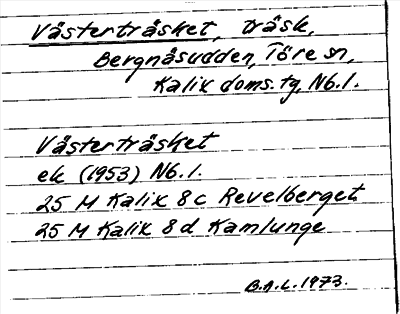 Västerträsket, träsk,
Bergnäsudden, Töre sn,
Kalix doms. tg, Nb. l.
Västerträsket
ek (1953) Nb. l.
25 M Kalix 8 c Revelberget
25 M Kalix 8 d Kamlunge
B.A.L. 1973.